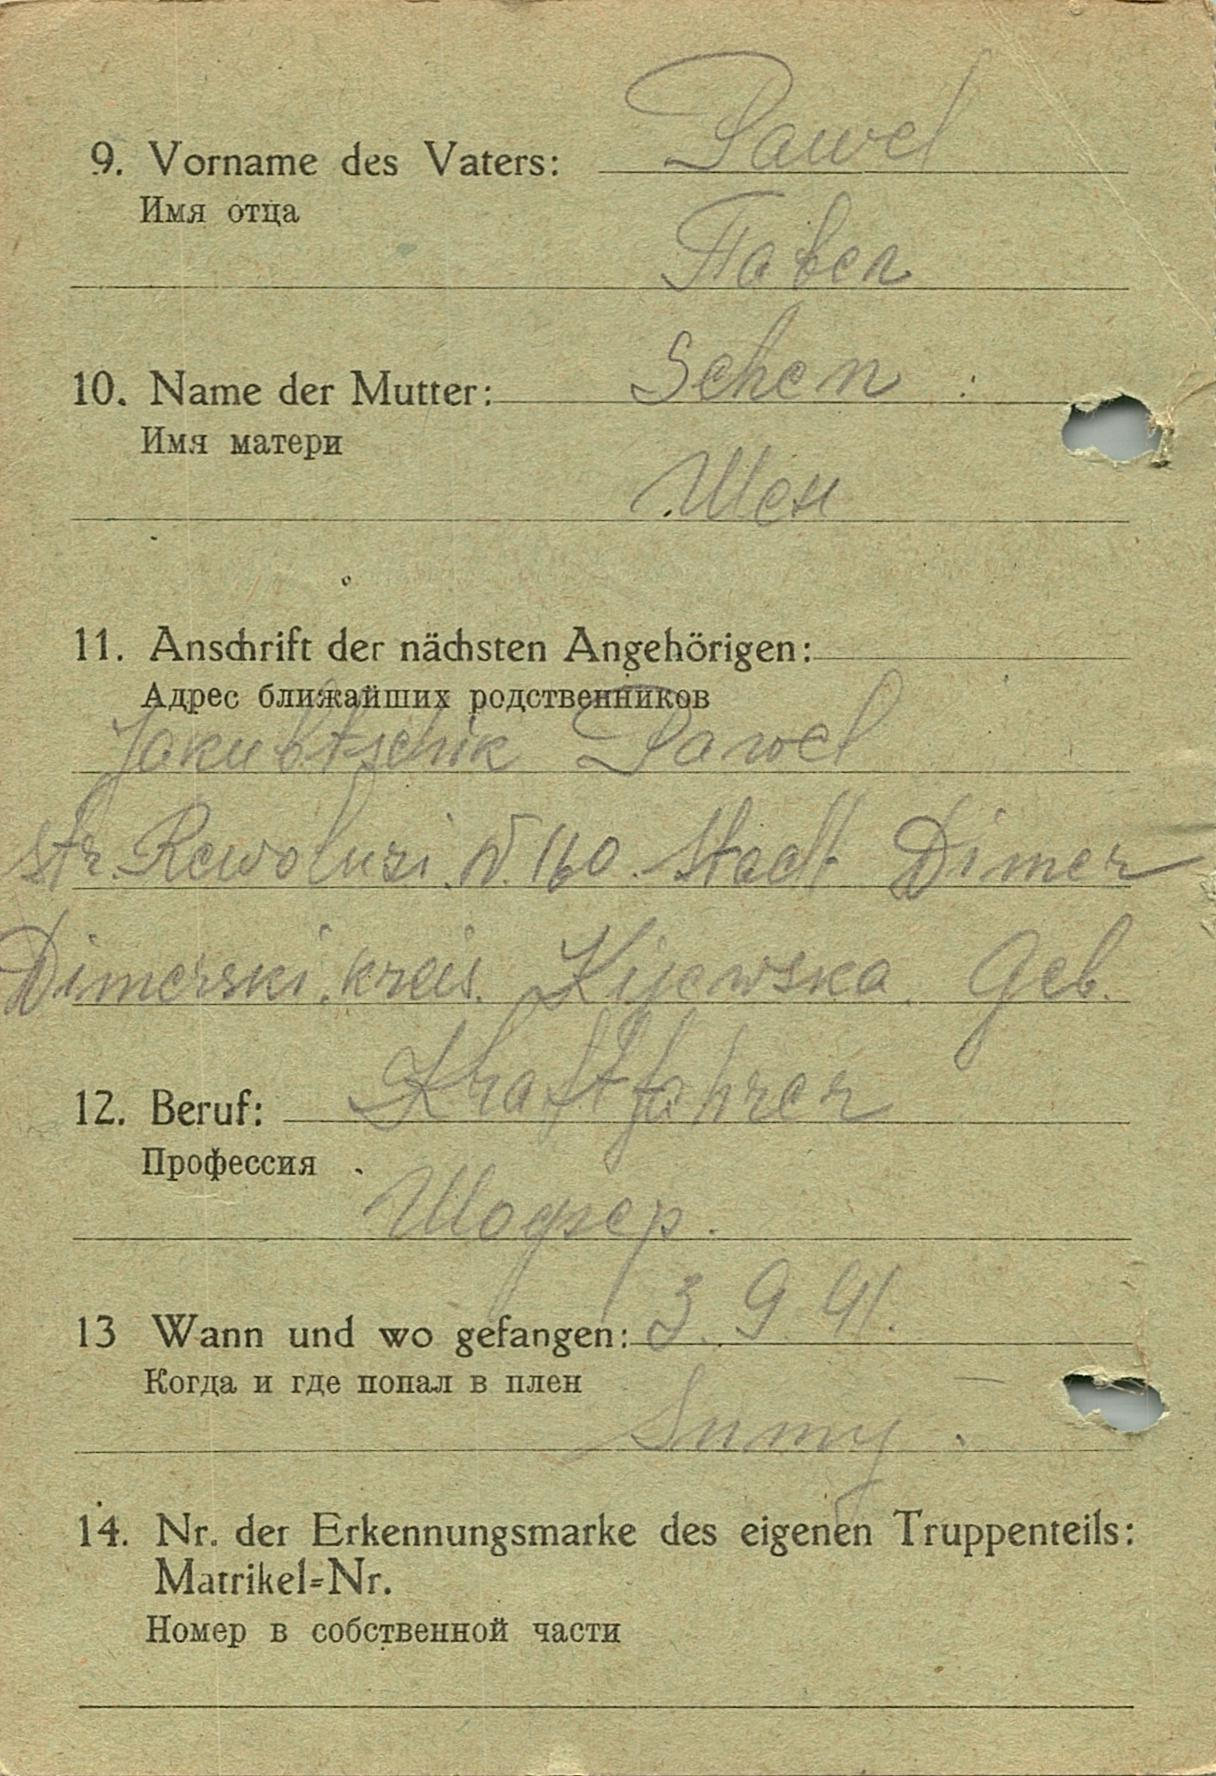 9. Vorname des Vaters: Pawel
Имя отца
Павел
10. Name der Mutter: Schen
Имя матери
Шен
11. Anschrift der nächsten Angehörigen:
Адрес ближайших родственников
Jakubtschik Pawel
str. Rewoluzi. N. 160. Stadt Dimer
Dimerski. kreis. Kijewska. Geb.
12. Beruf: Kraftfahrer
Профессия
Шофер.
13 Wann und wo gefangen: 3. 9. 41.
Когда и где попал в плен
Sumy.
14. Nr. der Erkennungsmarke des eigenen Truppenteils:
Matrikel-Nr.
Номер в собственной части